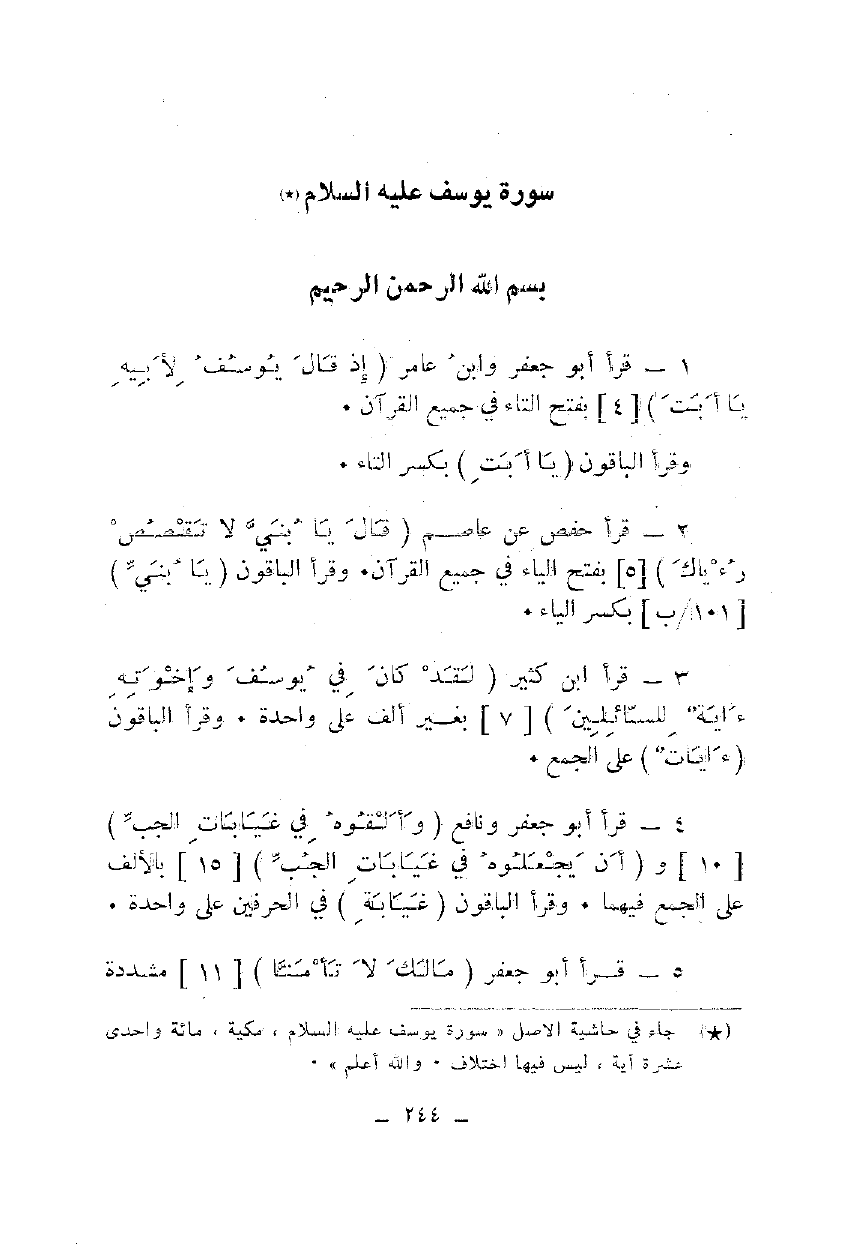 سورة يوسف عليه السلام (★)
بسم الله الرحمن الرحيم
١ — قرأ أبو جعفر وابنُ عامر ( إِذ قَالَ يُوسُفُ لِأَبِيهِ
يَا أَبَتَ ) [ ٤ ] بفتح التاء في جميع القرآن ٠
وقرأ الباقون ( يَا أَبَتِ ) بكسر التاء ٠
٢ — قرأ حفص عن عاصم ( قَالَ يَا بُنَيَّ لا تَقْصُصْ
رُءْيَاكَ ) [٥] بفتح الياء في جميع القرآن٠ وقرأ الباقون ( يَا بُنَيِّ )
[ ١٠١/ب ] بكسر الياء ٠
٣ — قرأ ابن كثير ( لَقَدْ كانَ فِي يُوسُفَ وَإِخْوَتِهِ
ءَايَةٌ لِلسَّائِلِينَ ) [ ٧ ] بغير ألف على واحدة ٠ وقرأ الباقون
( ءَايَاتٌ ) على الجمع ٠
٤ — قرأ أبو جعفر ونافع ( وَأَلْقُوهُ فِي غَيَابَاتِ الجبِّ )
[ ١٠ ] و ( أَن يَجْعَلُوهُ في غَيَابَاتِ الجُبِّ ) [ ١٥ ] بالألف
على الجمع فيهما ٠ وقرأ الباقون ( غَيَابَةِ ) في الحرفين على واحدة ٠
٥ — قرأ أبو جعفر ( مَالَكَ لَا تَأْمَنَّا ) [ ١١ ] مشددة
(★) جاء في حاشية الاصل « سورة يوسف عليه السلام ، مكية ، مائة واحدى
عشرة آية ، ليس فيها اختلاف ٠ والله أعلم » ٠
— ٢٤٤ —